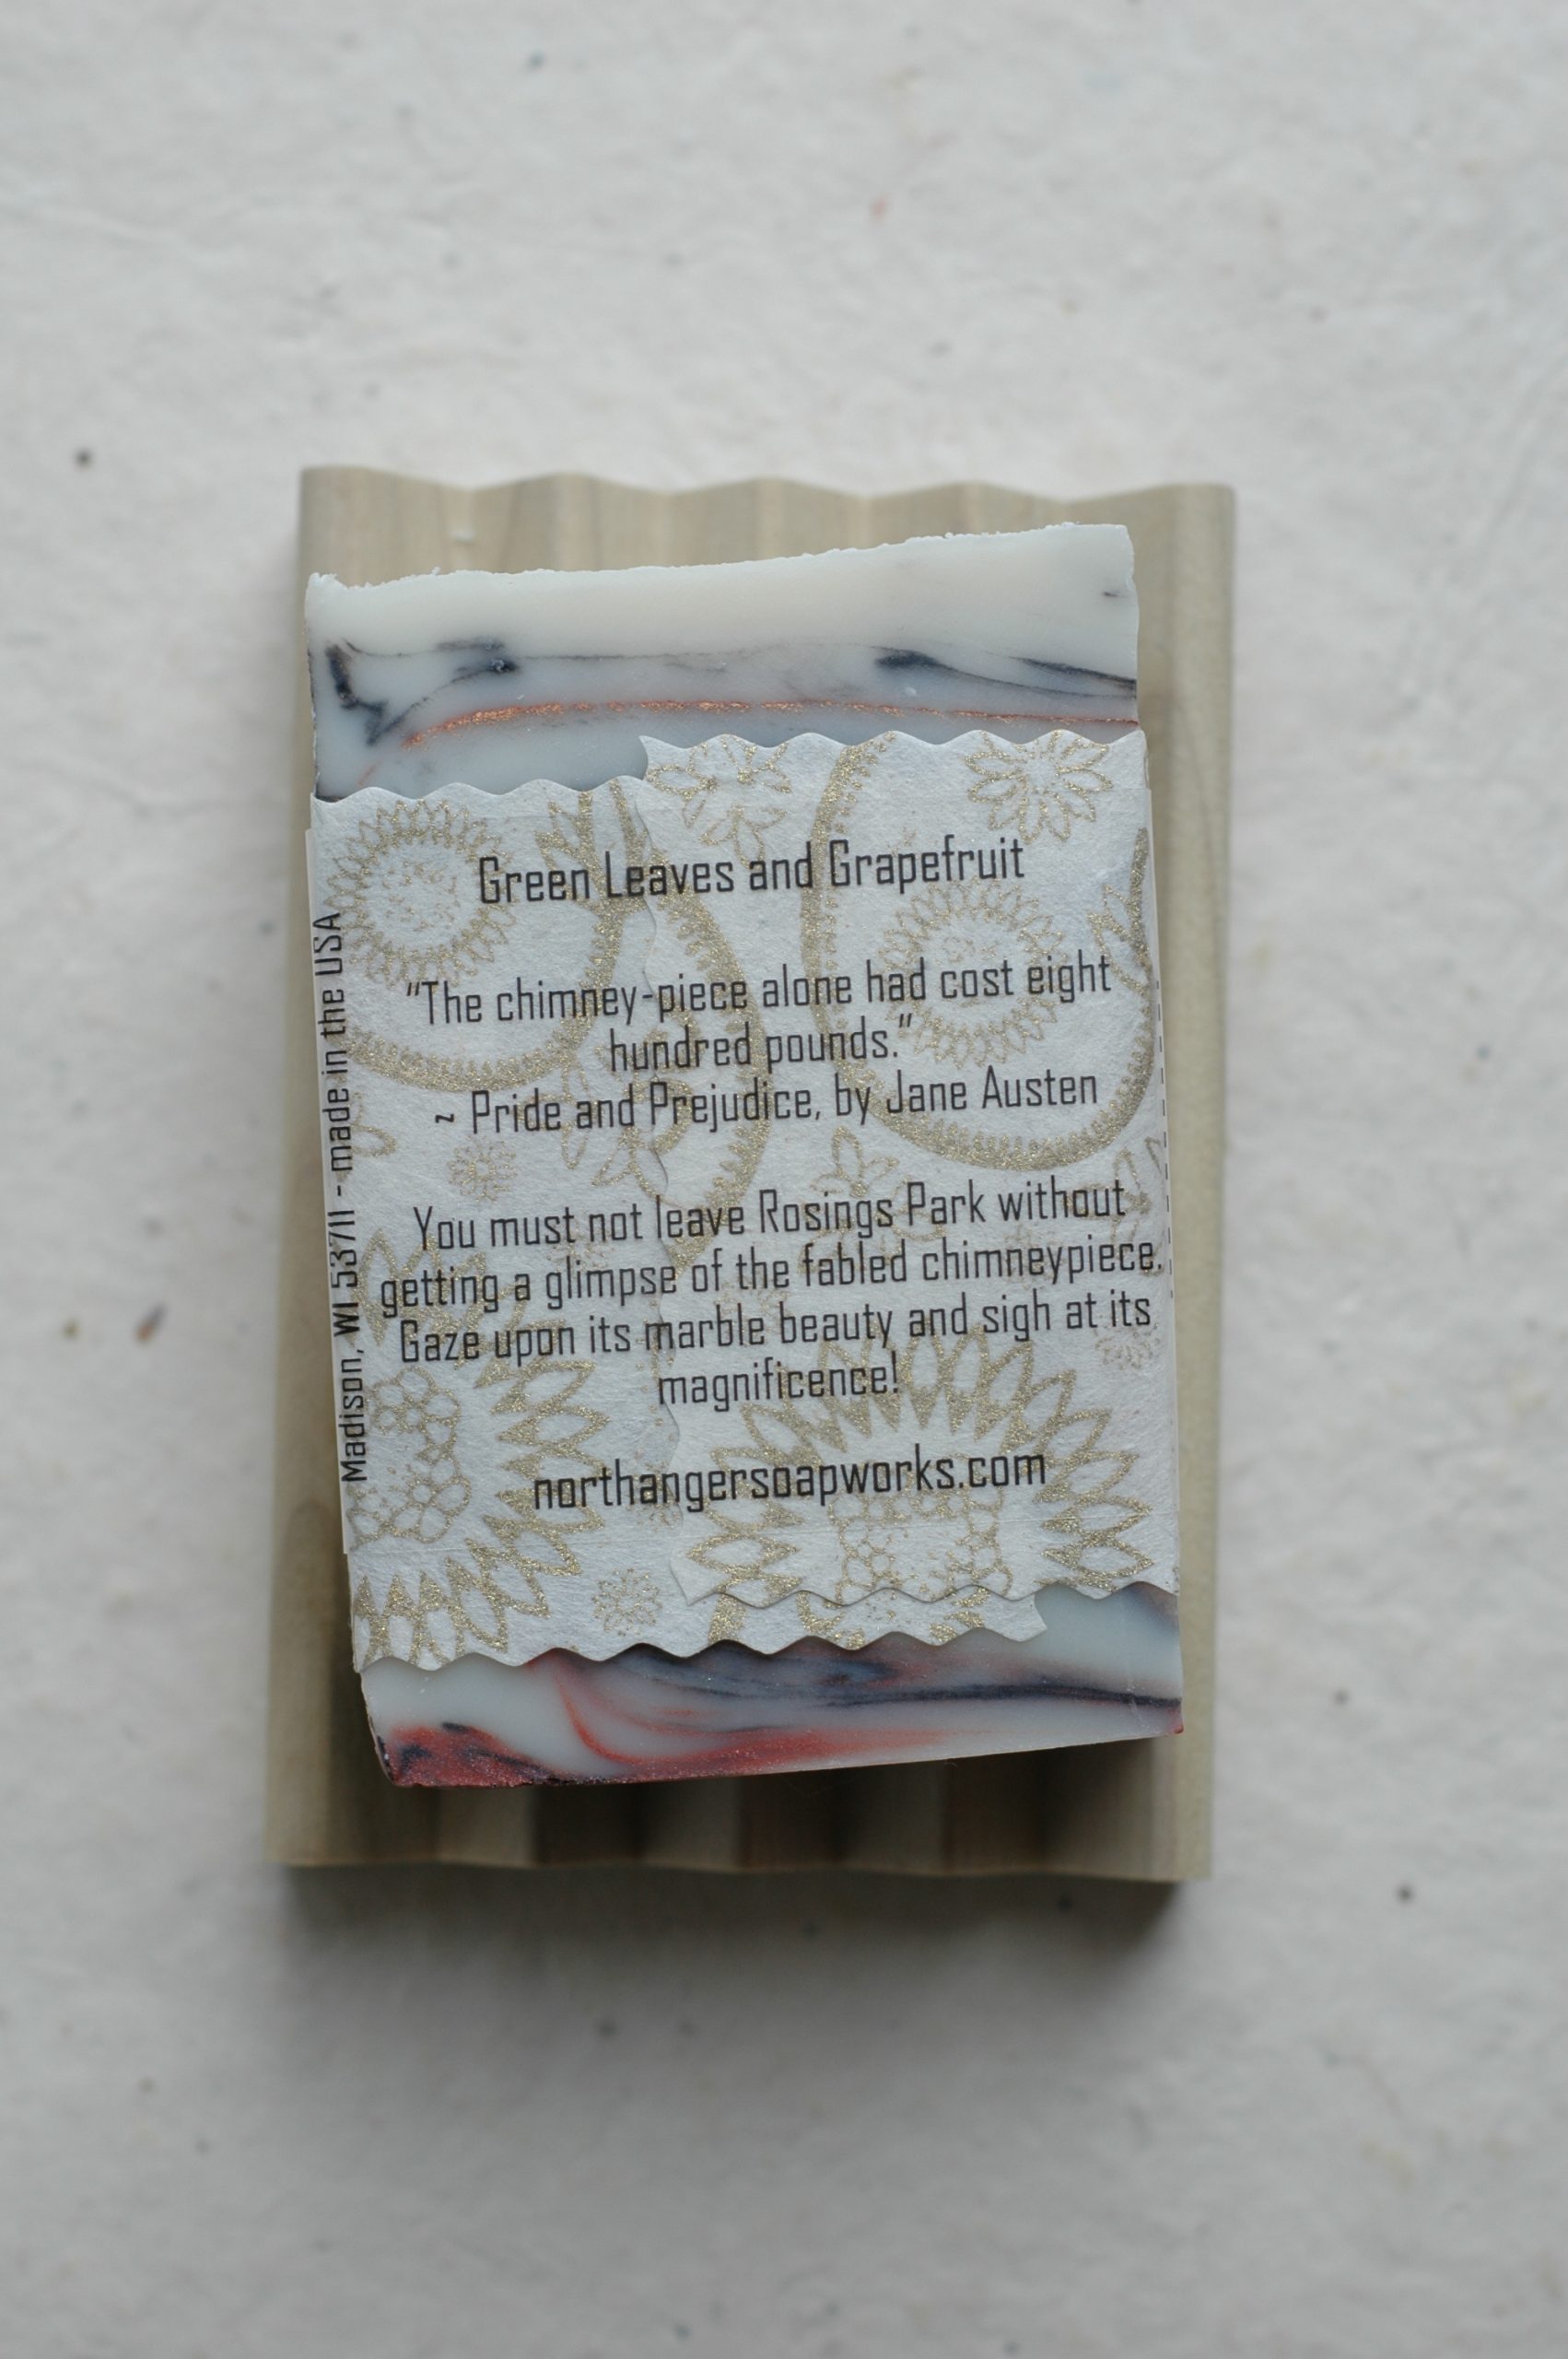 Green Leaves and Grapefruit
"The chimney-piece alone had cost eight
hundred pounds."
~ Pride and Prejudice, by Jane Austen
You must not leave Rosings Park without
getting a glimpse of the fabled chimneypiece.
Gaze upon its marble beauty and sigh at its
magnificence!
northangersoapworks.com
Madison, WI 53711 - made in the USA